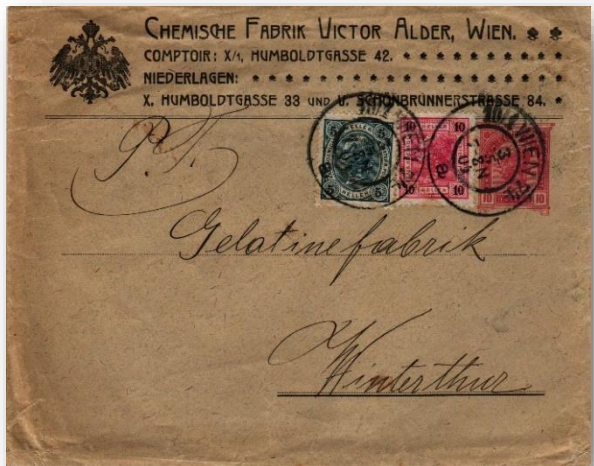 CHEMISCHE FABRIK VICTOR ALDER, WIEN.
COMPTOIR: X/1, HUMBOLDTGASSE 42.
NIEDERLAGEN:
X. HUMBOLDTGASSE 33 UND U. SCHÖNBRUNNERSTRASSE 84.
P. T.
5 5
10 10
10/1 WIEN
10 10
Gelatinefabrik
Winterthur